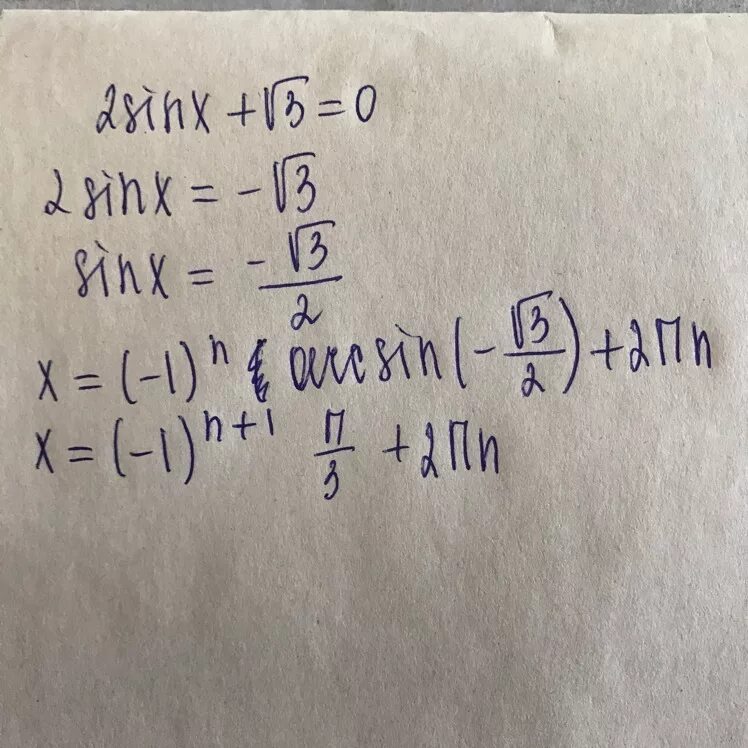 2sinx + √3 = 0
2sinx = -√3
sinx = -√3/2
x = (-1)ⁿ arcsin(-√3/2) + 2Пn
x = (-1)ⁿ⁺¹ П/3 + 2Пn